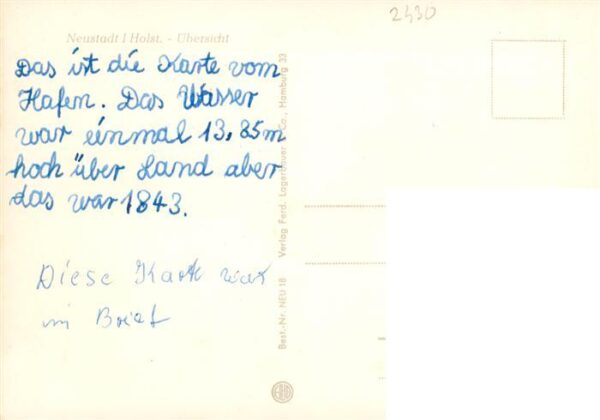 2430
Neustadt i Holst. - Übersicht
Das ist die Karte vom
Hafen. Das Wasser
war einmal 13,85m
hoch über Land aber
das war 1843.
Diese Karte war
im Brief
Best.-Nr. NEU 18 Verlag Ferd. Lagerbauer & Co., Hamburg 33